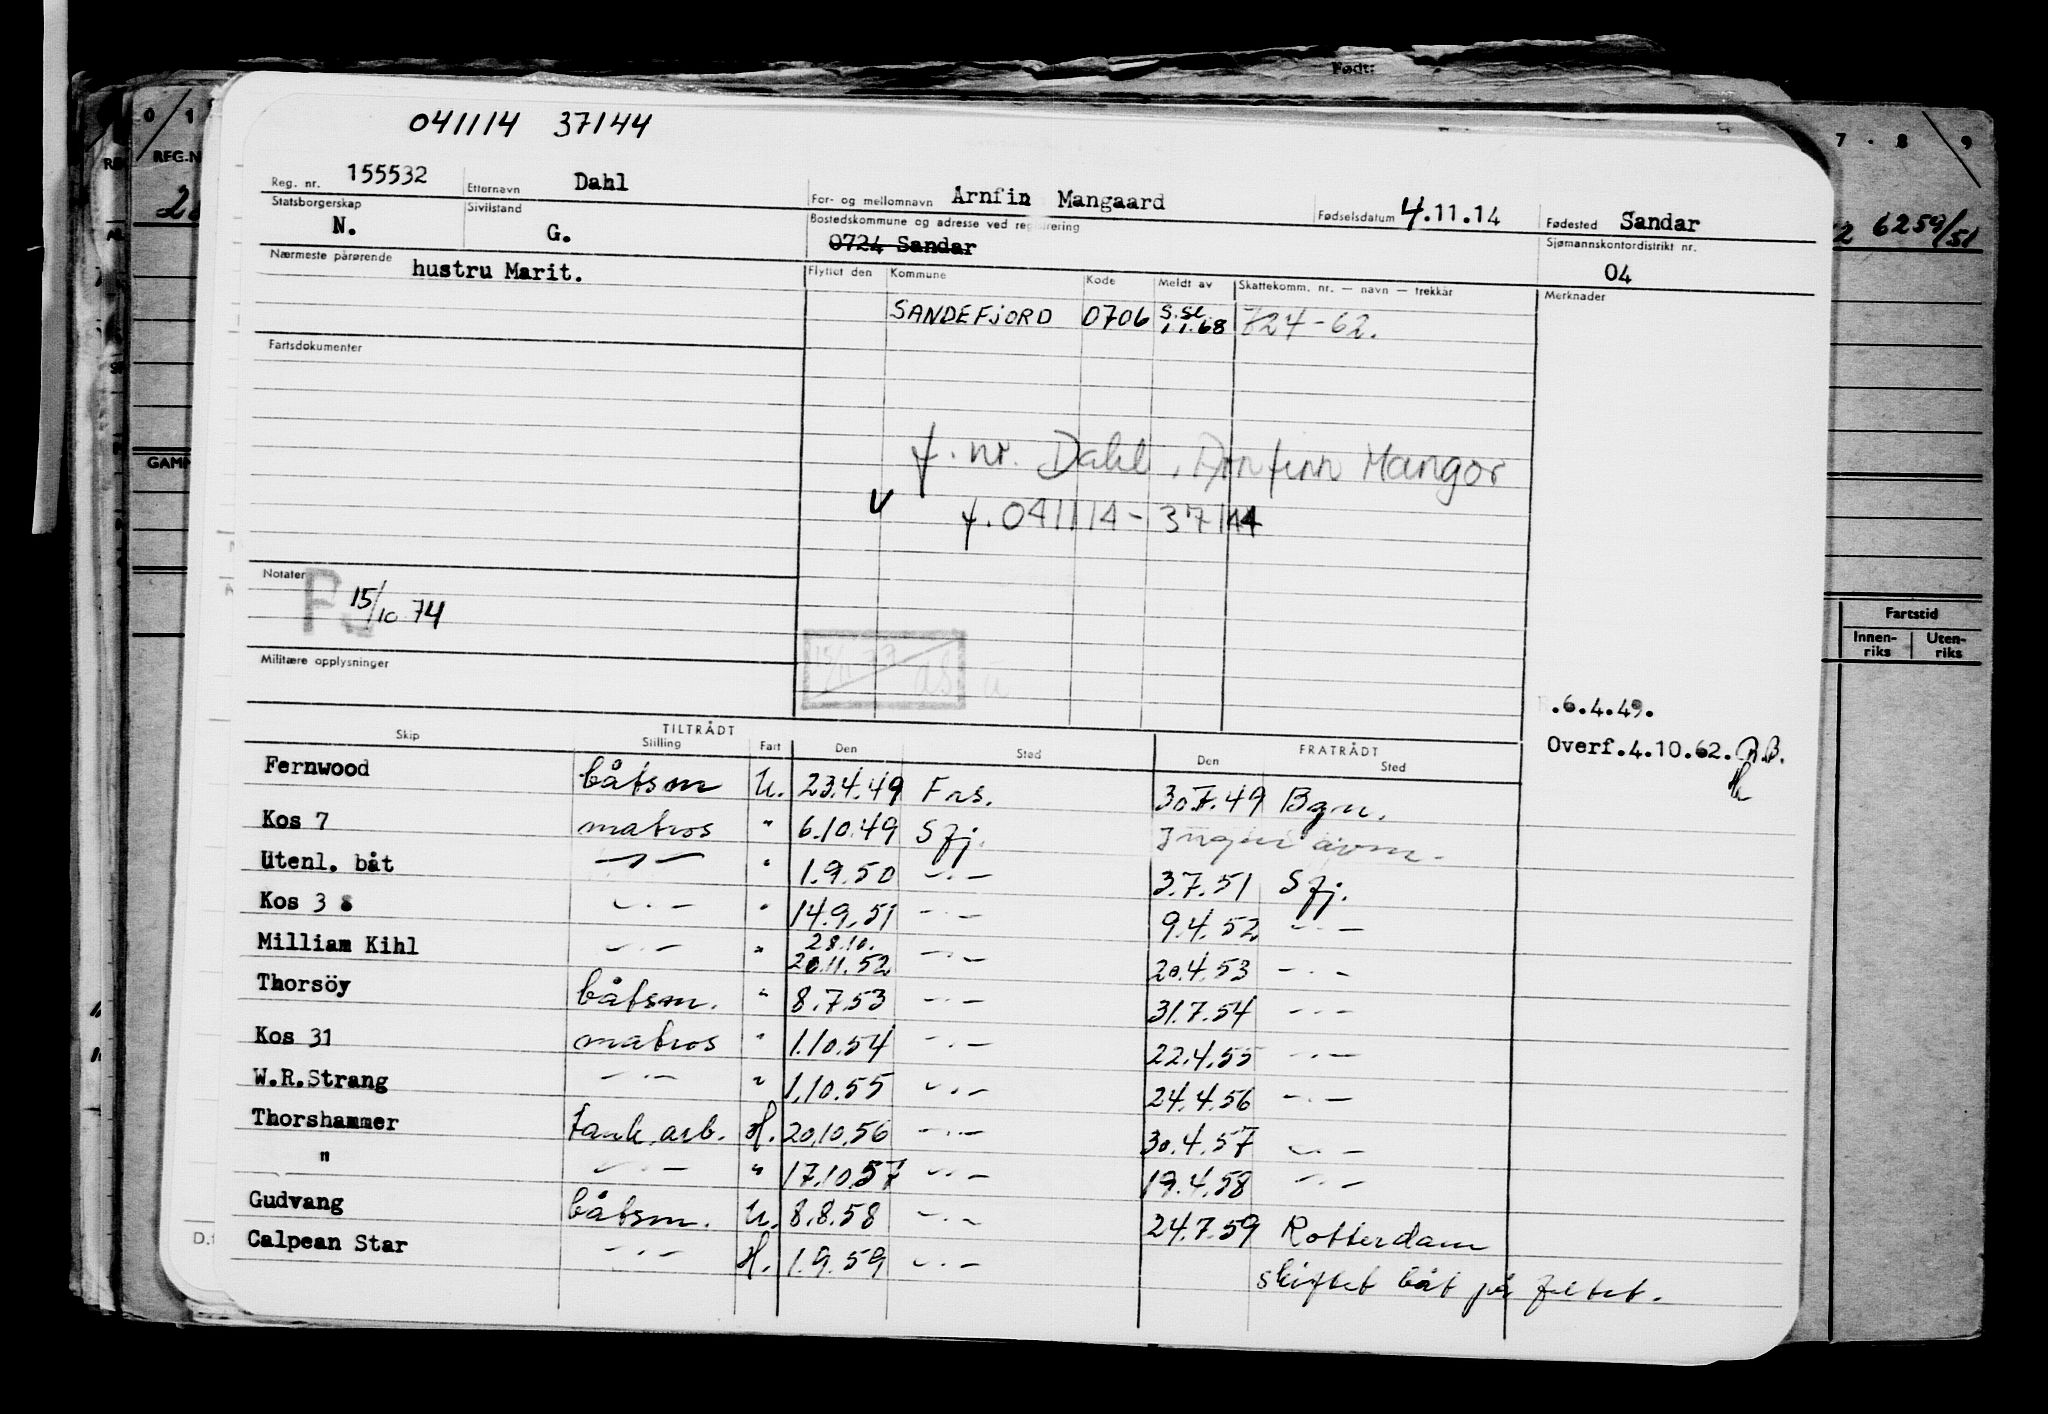 Født:
041114 37144
0 1
7 - 8 9
REG.N
Reg. nr. 155532 Etternavn Dahl For- og mellomnavn Arnfin Mangaard Fødselsdatum 4.11.14 Fødested Sandar
6259/51
Statsborgerskap N. Sivilstand G. Bostedskommune og adresse ved registrering 0724 Sandar Sjømannskontordistrikt nr. 04
Nærmeste pårørende hustru Marit. Flyttet den Kommune Kode Meldt av Skattekomm. nr. — navn — trekkår Merknader
SANDEFJORD 0706 1.1.68 724-62.
Fartsdokumenter
GAMM
f. nr. Dahl, Arnfinn Mangor
V f. 041114-37144
Notater
15/10 74
Militære opplysninger
Fartstid
Innen-riks Uten-riks
.6.4.49.
Overf.4.10.62.
TILTRÅDT FRATRÅDT
Skip Stilling Fart Den Sted Den Sted
Fernwood båtsm U. 23.4.49 Fns. 30.7.49 Bgn.
Kos 7 matros " 6.10.49 Sfj. Ingen avm.
Utenl. båt -"- " 1.9.50 -"- 3.7.51 Sfj.
Kos 3 8 -"- " 14.9.51 -"- 9.4.52 -"-
Milliam Kihl -"- " 28.10. 20.11.52 -"- 20.4.53 -"-
Thorsöy båtsm. " 8.7.53 -"- 31.7.54 -"-
Kos 31 matros " 1.10.54 -"- 22.4.55 -"-
W.R.Strang -"- " 1.10.55 -"- 24.4.56 -"-
Thorshammer tank.arb. H. 20.10.56 -"- 30.4.57 -"-
" -"- " 17.10.57 -"- 19.4.58 -"-
Gudvang båtsm. U. 8.8.58 -"- 24.7.59 Rotterdam
Calpean Star -"- H. 1.9.59 -"- skiftet båt på feltet.